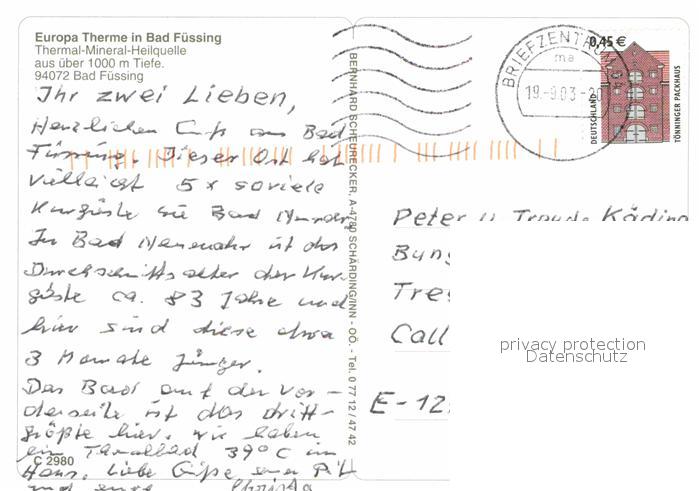 Europa Therme in Bad Füssing
Thermal-Mineral-Heilquelle
aus über 1000 m Tiefe.
94072 Bad Füssing
Ihr zwei Lieben,
Herzlichen Gruß aus Bad
Füssing. Dieser Ort hat
vielleicht 5 x soviele
Kurgäste wie Bad
In Bad Neuenahr ist das
Durchschnittsalter der Kur-
gäste ca. 83 Jahre und
hier sind diese etwa
3 Monate jünger.
Das Bad auf der Vor-
derseite ist das dritt-
größte hier. Wir haben
ein Thermalbad 39°C im
Haus. Liebe Grüße
und
C 2980
BERNHARD SCHEURECKER, A-4780 SCHÄRDING/INN - OÖ. - Tel. 0 77 12 / 47 42
BRIEFZENTRUM
ma
19.-9.03.-20
0,45 €
DEUTSCHLAND
TÖNNINGER PACKHAUS
Peter u. Traude Käding
Bun
Tre
Call
E-12
privacy protection
Datenschutz